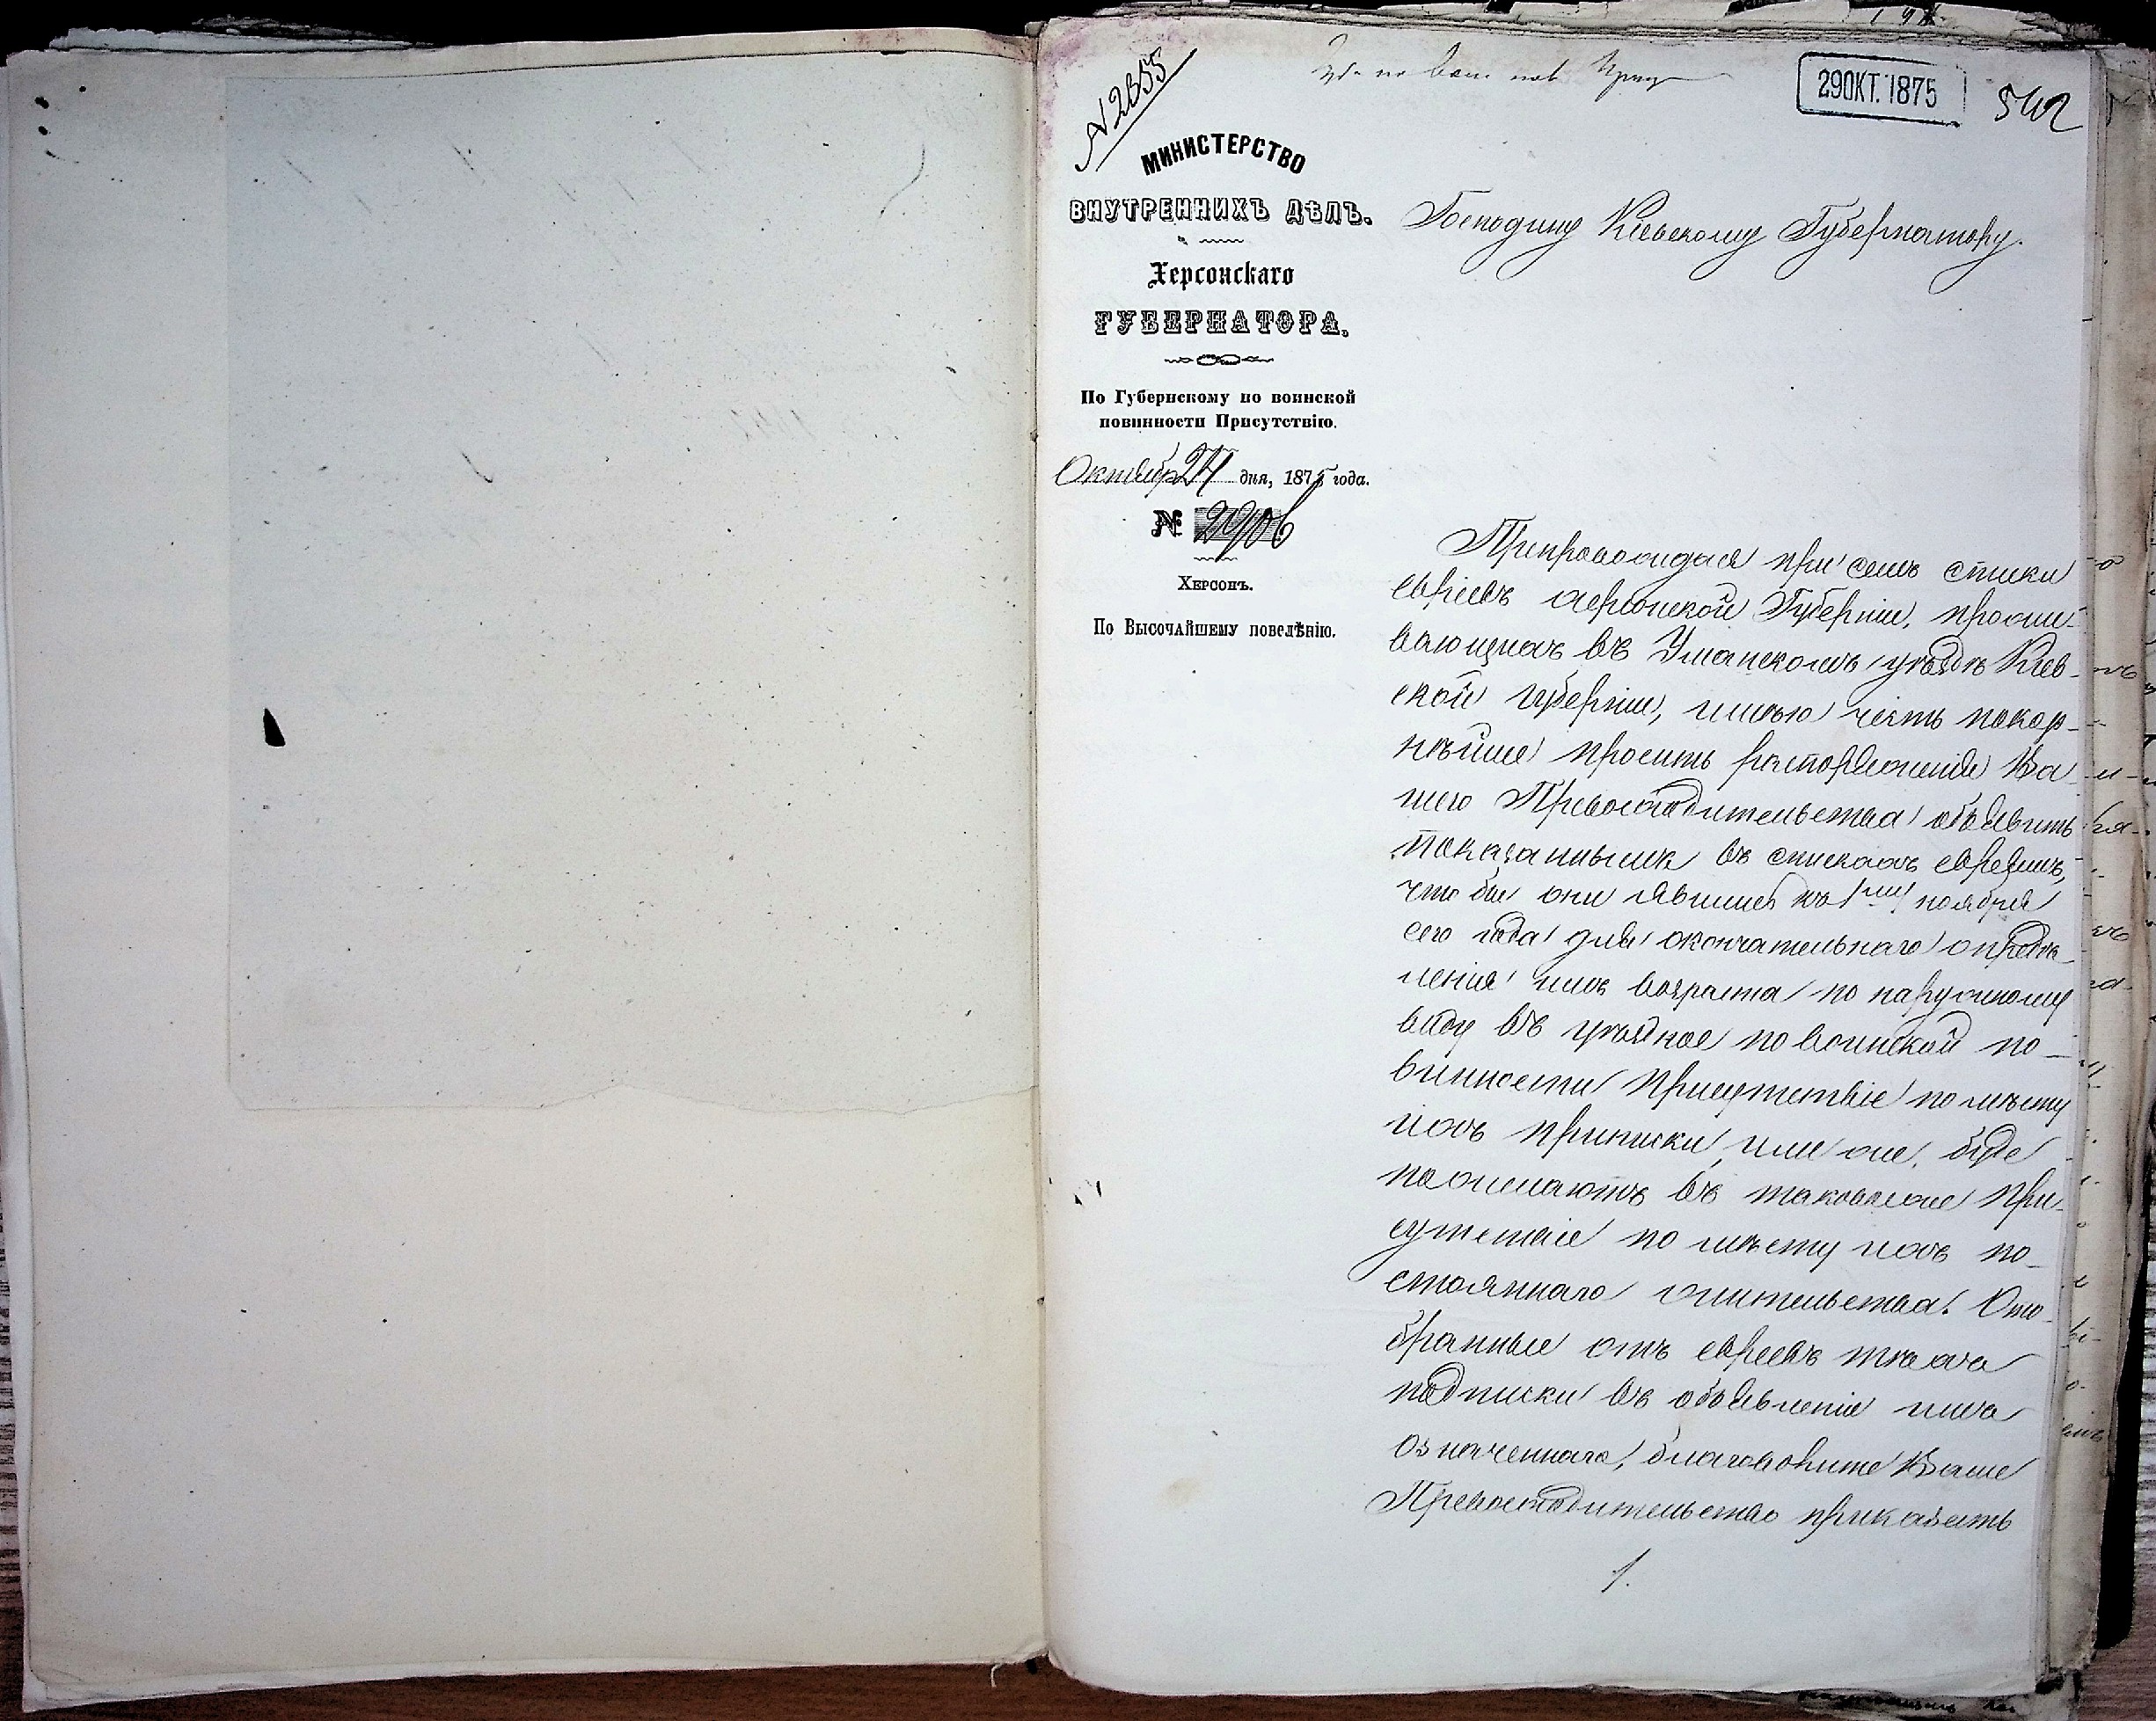 № 2855
29 ОКТ. 1875
542
МИНИСТЕРСТВО
ВНУТРЕННИХЪ ДѢЛЪ.
Херсонскаго
ГУБЕРНАТОРА.
По Губернскому по воинской
повинности Присутствію.
Октября 24 дня, 1875 года.
№ 2906
Херсонъ.
По Высочайшему повелѣнію.
Господину Кіевскому Губернатору.
Препровождая при семъ списки
евреевъ Херсонской Губерніи, прожи-
вающихъ въ Уманскомъ уѣздѣ Кіев-
ской губерніи, имѣю честь покор-
нѣйше просить распоряженія Ва
шего Превосходительства объявить
показаннымъ въ спискахъ евреямъ,
что бы они явились къ 1му ноября
сего года для окончательнаго опредѣ
ленія ихъ возраста по наружному
виду въ уѣздное по воинской по-
винности Присутствіе по мѣсту
ихъ приписки, или же, буде
пожелаютъ въ таковое же При-
сутствіе по мѣсту ихъ по-
стояннаго жительства. Ото-
бранные отъ евреевъ тѣхъ
подписки въ объявленіи имъ
означеннаго, благоволите Ваше
Превосходительство приказать
1.